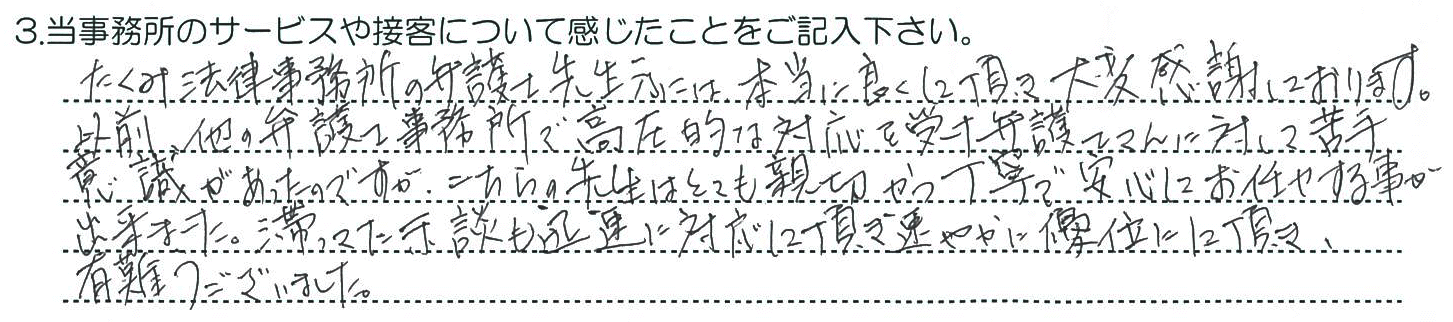 3.当事務所のサービスや接客について感じたことをご記入下さい。
たくみ法律事務所の弁護士先生方には、本当に良くして頂き大変感謝しております。
以前、他の弁護士事務所で高圧的な対応を受け弁護士さんに対して苦手
意識があったのですが、こちらの先生はとても親切かつ丁寧で安心してお任せする事が
出来ました。滞ってた示談も迅速に対応して頂き速やかに優位にして頂き、
有難うございました。